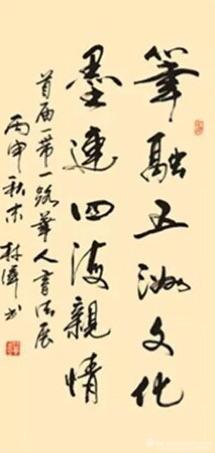 筆融五洲文化
墨連四海親情
首届一带一路華人書法展
丙申秋末 林峰书